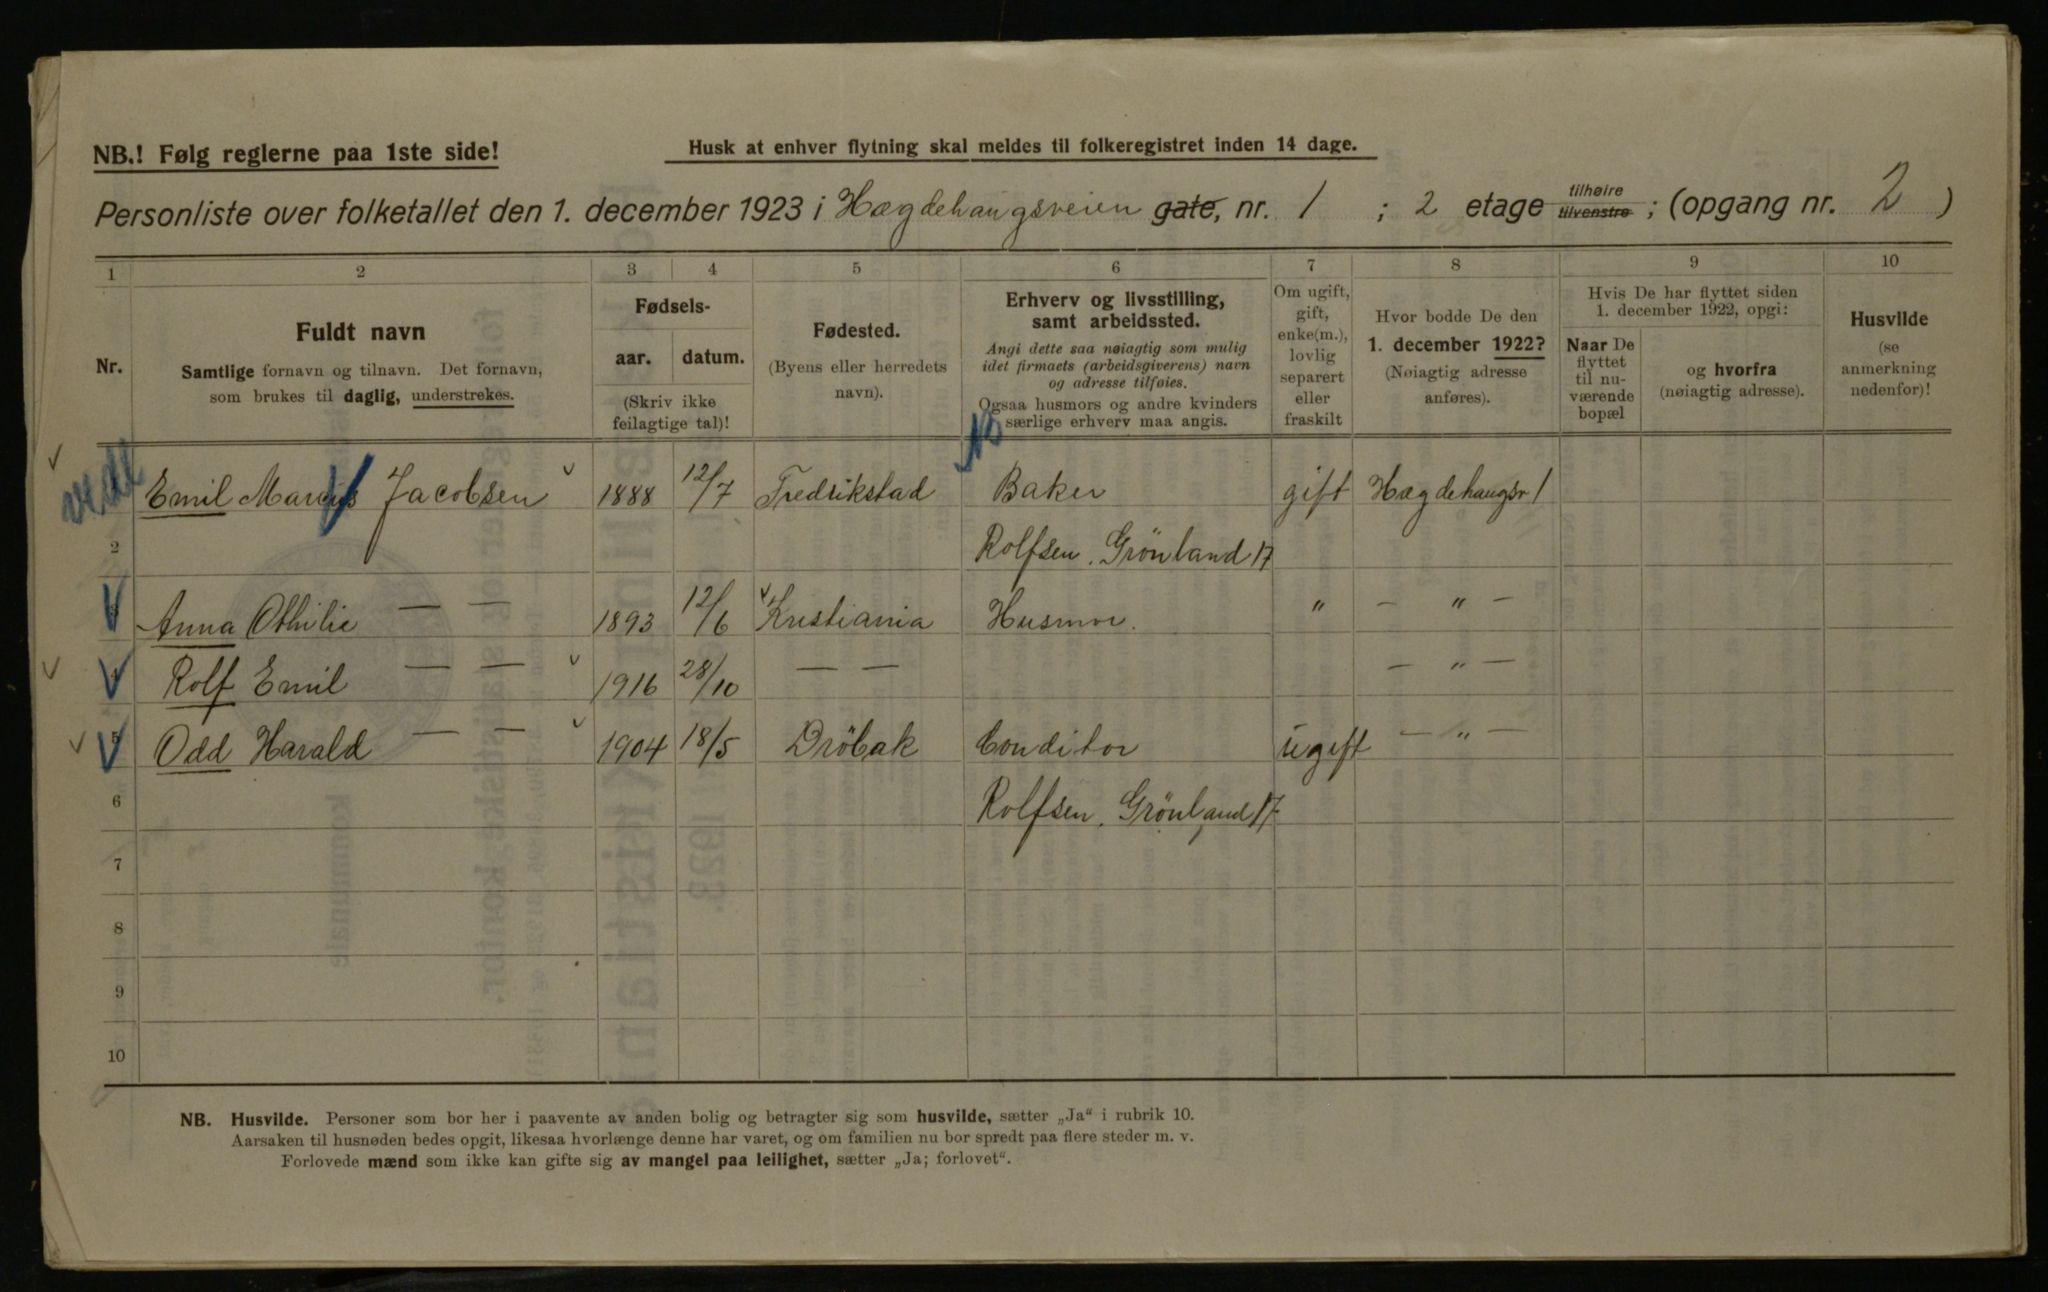 NB.! Følg reglerne paa 1ste side!
Husk at enhver flytning skal meldes til folkeregistret inden 14 dage.
Personliste over folketallet den 1. december 1923 i Hægdehaugsveien gate, nr. 1 ; 2 etage tilhøire tilvenstre ; (opgang nr. 2 )
1 2 3 4 5 6 7 8 9 10
Nr.
Fuldt navn
Samtlige fornavn og tilnavn. Det fornavn,
som brukes til daglig, understrekes.
Fødsels-
aar. datum.
(Skriv ikke
feilagtige tal)!
Fødested.
(Byens eller herredets
navn).
Erhverv og livsstilling,
samt arbeidssted.
Angi dette saa nøiagtig som mulig
idet firmaets (arbeidsgiverens) navn
og adresse tilføies.
Ogsaa husmors og andre kvinders
særlige erhverv maa angis.
Om ugift,
gift,
enke(m.),
lovlig
separert
eller
fraskilt
Hvor bodde De den
1. december 1922?
(Nøiagtig adresse
anføres).
Hvis De har flyttet siden
1. december 1922, opgi:
Naar De
flyttet
til nu-
værende
bopæl
og hvorfra
(nøiagtig adresse).
Husvilde
(se
anmerkning
nedenfor)!
Emil Marcus Jacobsen 1888 12/7 Fredrikstad Baker gift Hægdehaugsv 1
2 Rolfsen. Grönland 17
3 Anna Othilie — — 1893 12/6 Kristiania Husmor. " — " —
4 Rolf Emil — — 1916 28/10 — — — " —
5 Odd Harald — — 1904 18/5 Dröbak Conditor ugift — " —
6 Rolfsen. Grönland 17
7
8
9
10
NB. Husvilde. Personer som bor her i paavente av anden bolig og betragter sig som husvilde, sætter „Ja" i rubrik 10.
Aarsaken til husnøden bedes opgit, likesaa hvorlænge denne har varet, og om familien nu bor spredt paa flere steder m. v.
Forlovede mænd som ikke kan gifte sig av mangel paa leilighet, sætter „Ja; forlovet".